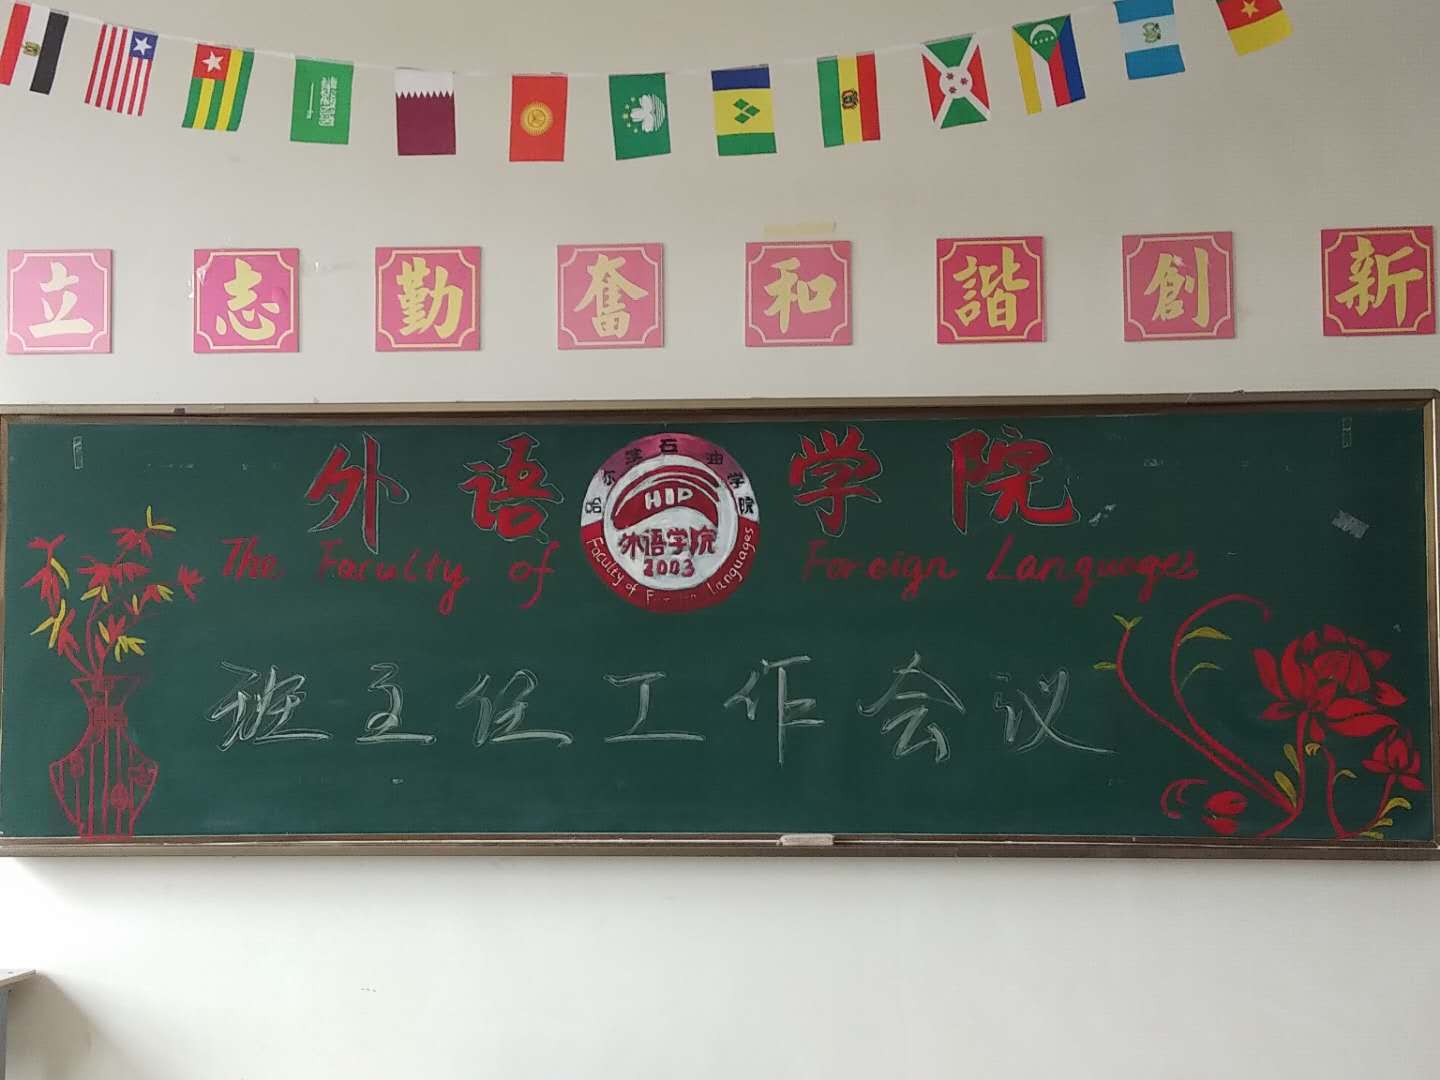 立志勤奮和諧創新
外语学院
The Faculty of Foreign Languages
哈尔滨石油学院
HIP
外语学院
2003
Faculty of Foreign Languages
班主任工作会议